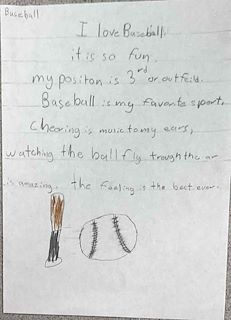 Baseball
I love Baseball,
it is so fun.
my positon is 3rd or outfeild.
Baseball is my favorite sport,
Cheering is music to my ears,
watching the ball fly trough the ar
is amazing. the feeling is the best ever.